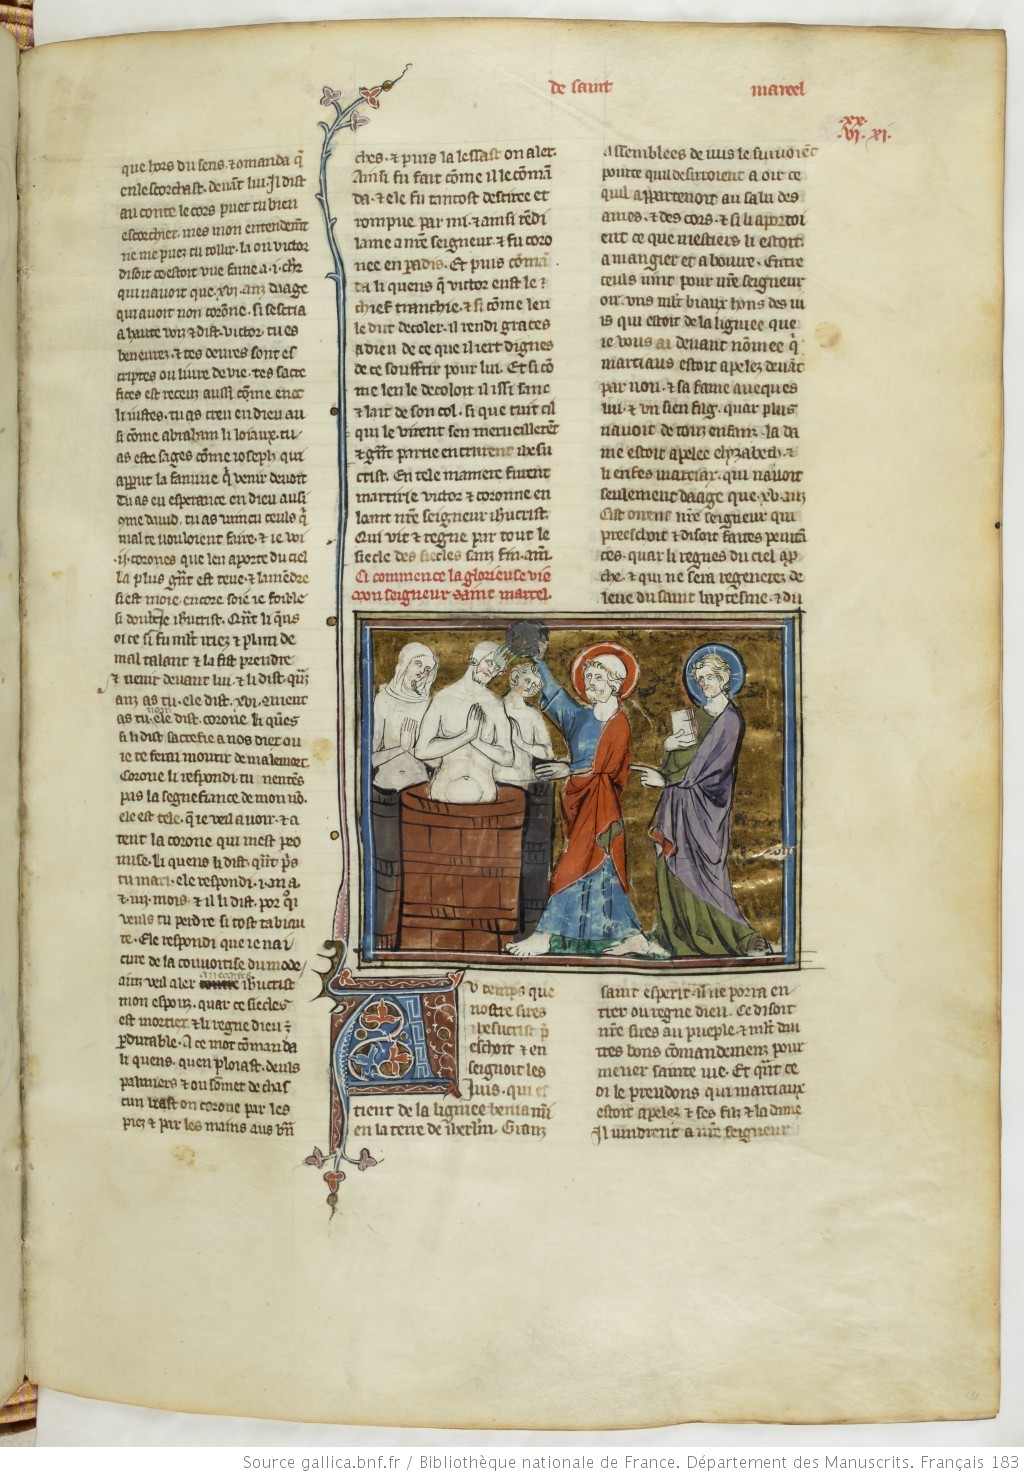 de saint marcel
.xx.
.vi. xi.
que hors du sens. ⁊ omanda q̃
en le scorchast. deuãt lui. Il dist
au conte le cors puet tu bien
escorchier. mes mon entendemẽt
ne me puez tu tollir. la ou victor
disoit ce estoit vne fame a .i. chr̃
qui nauoit que .xvi. anz daage
qui auoit non corõne. si sescria
a haute voiz ⁊ dist. victor. tu es
beneurez. ⁊ tes oeures sont es
criptes ou liure de vie. tes sacre
fices est receuz aussi cõme en ce
li iustes. tu as creu en dieu au
si cõme abraham li loiaux. tu
as este sages cõme ioseph qui
apput la famine q̃ venir deuoit
tu as eu esperance en dieu ausi
ꝯme dauid. tu as vaincu ceuls q̃
mal te vouloient faire. ⁊ ie voi
.ij. corones que len aporte du ciel
la plus gñt est teue. ⁊ la mẽdre
si est moie. encore soie ie foible
si doubte ie ihucrist. Qñt li q̃ns
oi ce si fu mlt iriez ⁊ plain de
mal talant ⁊ la fist prendre
⁊ venir deuant lui. ⁊ li dist. quãz
anz as tu. ele dist. xvi. ꝯment
as tu non. ele dist. corone. li quẽs
li dist. sacrefie a nos diex ou
ie te ferai mourir de male mort.
Corone li respondi. tu nentẽs
pas la segnefiance de mon nõ.
ele est tele. q̃ ie veil auoir. ⁊ a
tent la corone qui mest pro
mise. li quens li dist. qñt p̃s
tu mari. ele respondi. i. an a.
⁊ iiij. mois. ⁊ il li dist. por q̃i
veuls tu perdre si tost ta biau
te. Ele respondi que ie nai
cure de la couuoitise du mõde/
ainz veil aler auecques ihucrist
mon espouz. quar ce siecles
est mortiex ⁊ li regne dieu ẽ
ꝑdurable. A ce mot cõmanda
li quens. quen ploiast. deuls
palmiers ⁊ ou sõmet de chas
cun liast on corone par les
piez ⁊ par les mains aus brã
ches. ⁊ puis la lessast on aler.
Ainsi fu fait cõme il le cõmã
da. ⁊ ele fu tantost desciree et
rompue par mi. ⁊ ainsi rẽdi
lame a nr̃e seigneur. ⁊ fu coro
nee en padis. Et puis cõmã
da li quens q̃ victor eust le
chief tranchie. ⁊ si cõme len
le dut decoler. il rendi graces
a dieu de ce que il iert dignes
de ce souffrir pour lui. Et si cõ
me len le decoloit il issi sanc
⁊ lait de son col. si que tuit cil
qui le virent sen merueillerẽt
⁊ gñt partie en crurent ihesu
crist. En tele maniere furent
martirie victor ⁊ coronne en
lant nr̃e seigneur ihucrist.
Qui vit ⁊ regne par tout le
siecle des siecles sanz fin. amẽ.
Ci commence la glorieuse vie
mon seigneur saint marcel.
u temps que
nostre sires
ihesucrist p̃
eschoit ⁊ en
seignoit les
Juis. qui es
tient de la lignee beniamĩ
en la terre de iherlm̃. Granz
assemblees de iuis le suiuoiẽt
pource quil desirroient a oir ce
quil appartenoit au salu des
ames. ⁊ des cors. ⁊ si li aportoi
ent ce que mestiers li estoit.
a mangier et a boiure. Entre
ceuls vint pour nr̃e seigneur
oir. vns mlt biaux hons des iu
is qui estoit de la lignee que
ie vous ai deuant nõmee q̃
marciaus estoit apelez deuãt
par non. ⁊ sa fame auecques
lui. ⁊ vn sien filz. quar plus
nauoit de touz enfanz. la da
me estoit apelee elyzabeth. ⁊
li enfes marciax. qui nauoit
seulement daage que .xv. anz
Cist oient nr̃e seigneur qui
preeschoit ⁊ disoit faites peniã
ces. quar li regnes du ciel apr̃
che. ⁊ qui ne sera regenerez de
leue du saint baptesme. ⁊ du
saint esperit. il ne porra en
trer ou regne dieu. Ce disoit
nr̃e sires au pueple. ⁊ mlt dau
tres bons cõmandemenz pour
mener sainte vie. Et qñt ce
oi le preudons qui marciaux
estoit apelez ⁊ ses filz ⁊ la dame
Il vindrent a nr̃e seigneur
Source gallica.bnf.fr / Bibliothèque nationale de France. Département des Manuscrits. Français 183